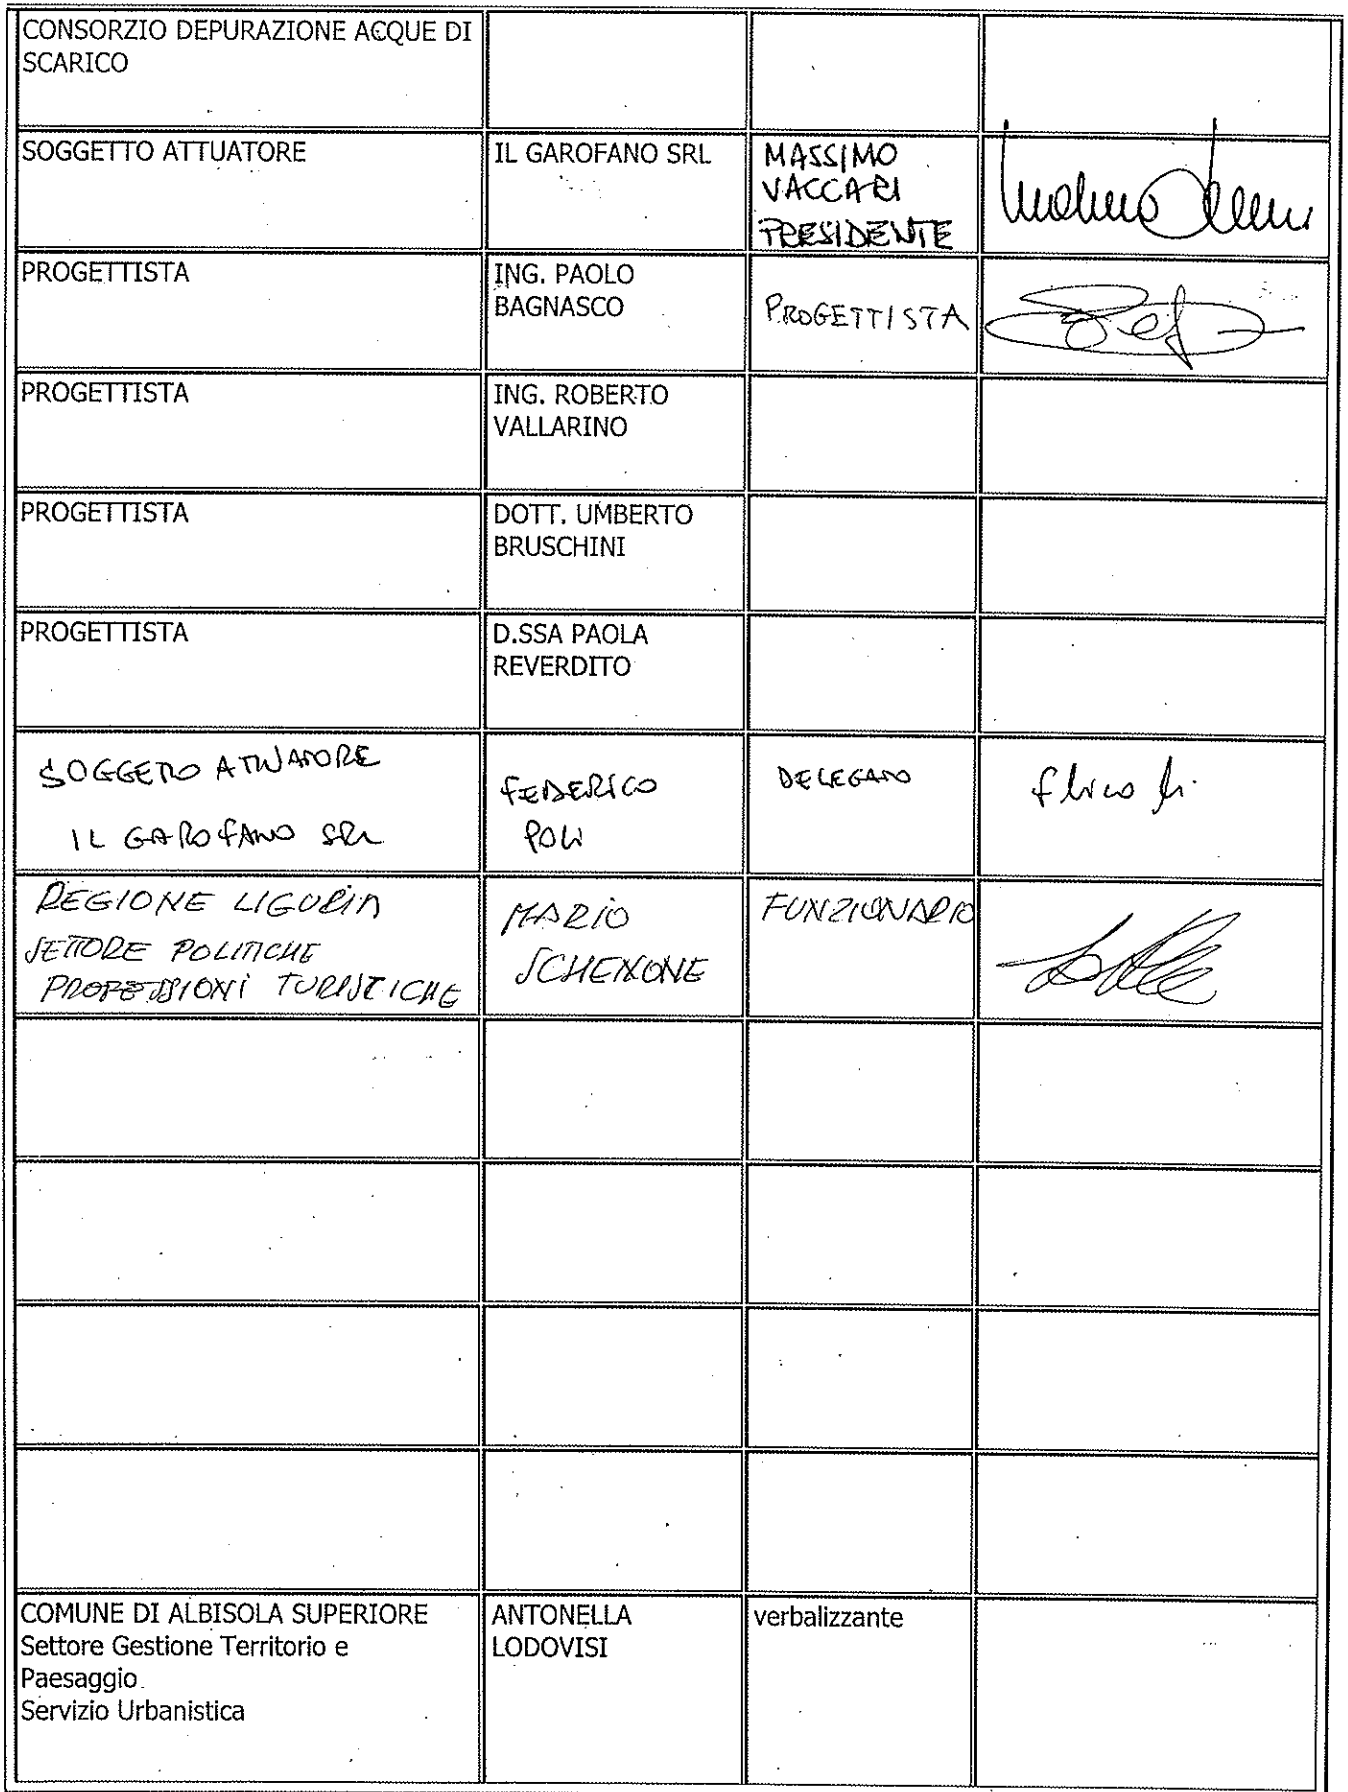 CONSORZIO DEPURAZIONE ACQUE DI
SCARICO
SOGGETTO ATTUATORE
IL GAROFANO SRL
MASSIMO
VACCARI
PRESIDENTE
PROGETTISTA
ING. PAOLO
BAGNASCO
PROGETTISTA
PROGETTISTA
ING. ROBERTO
VALLARINO
PROGETTISTA
DOTT. UMBERTO
BRUSCHINI
PROGETTISTA
D.SSA PAOLA
REVERDITO
SOGGETTO ATTUATORE
IL GAROFANO SRL
FEDERICO
POLI
DELEGATO
REGIONE LIGURIA
SETTORE POLITICHE
PROFESSIONI TURISTICHE
MARIO
SCHENONE
FUNZIONARIO
COMUNE DI ALBISOLA SUPERIORE
Settore Gestione Territorio e
Paesaggio
Servizio Urbanistica
ANTONELLA
LODOVISI
verbalizzante